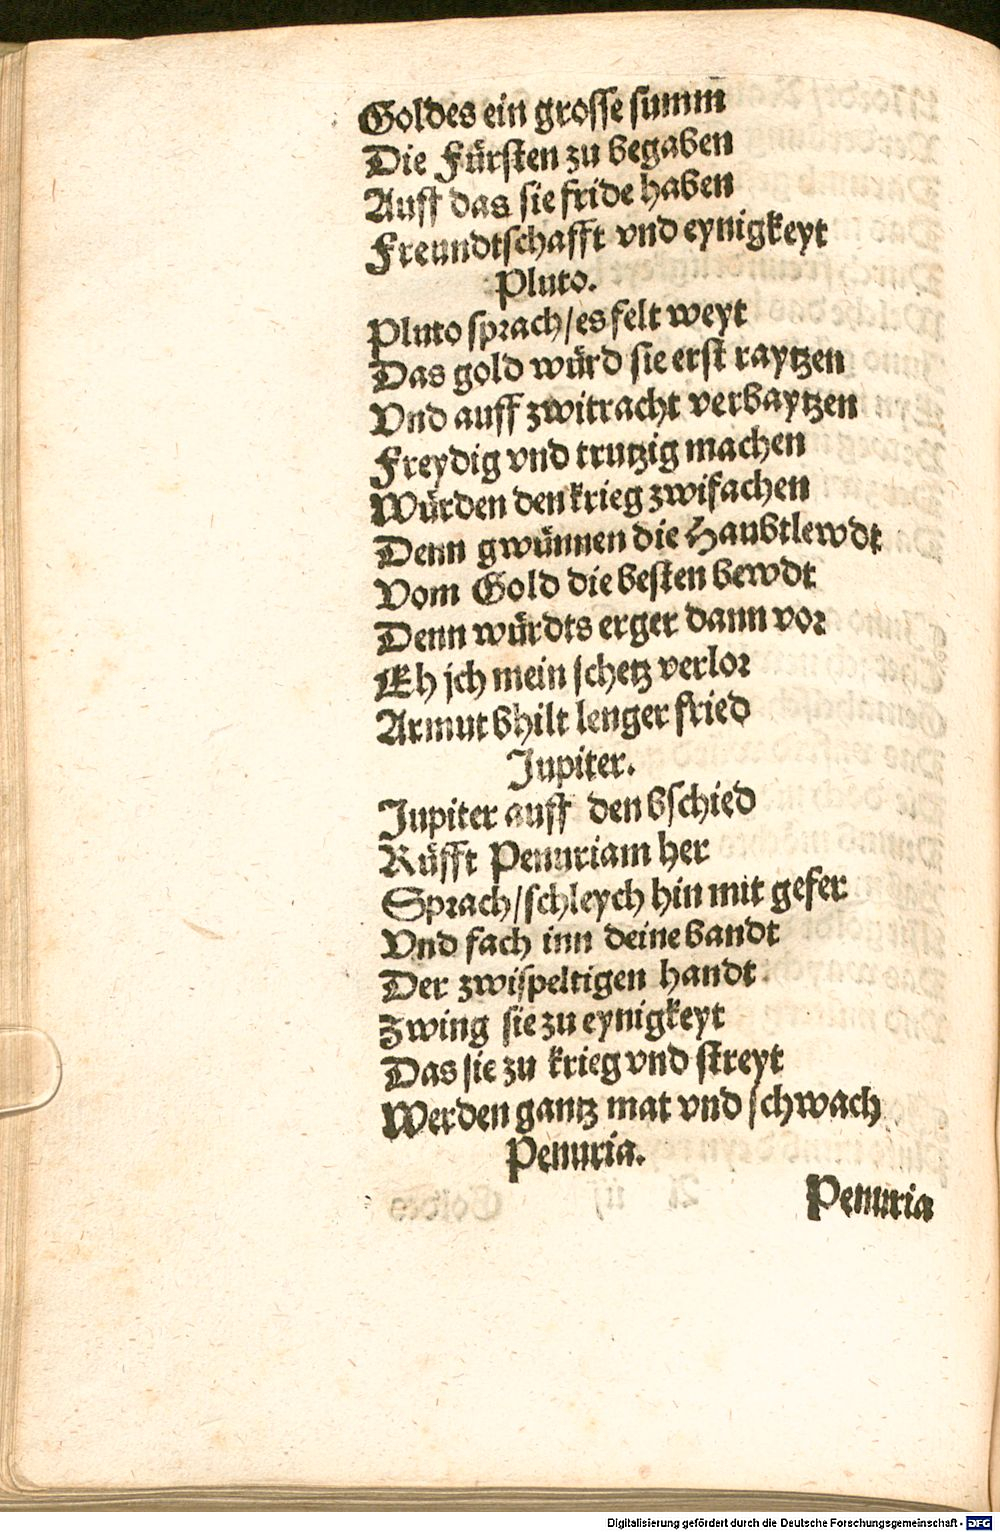 Goldes ein grosse summ
Die Fürsten zu begaben
Auff das sie fride haben
Freundtschafft vnd eynigkeyt
Pluto.
Pluto sprach/es felt weyt
Das gold würd sie erst raytzen
Vnd auff zwitracht verbaytzen
Freydig vnd trutzig machen
Würden den krieg zwifachen
Denn gwünnen die Haubtlewdt
Vom Gold die besten bewdt
Denn würdts erger dann vor
Eh jch mein schetz verlor
Armut bhilt lenger fried
Jupiter.
Jupiter auff den bschied
Rüfft Penuriam her
Sprach/schleych hin mit gefer
Vnd fach inn deine bandt
Der zwispeltigen handt
Zwing sie zu eynigkeyt
Das sie zu krieg vnd streyt
Werden gantz mat vnd schwach
Penuria.
Penuria
Digitalisierung gefördert durch die Deutsche Forschungsgemeinschaft - DFG